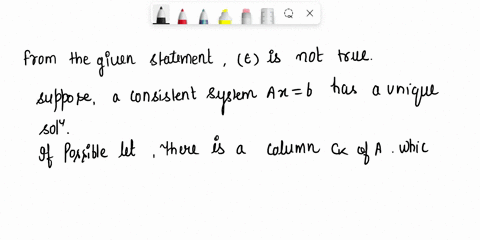 from the given statement, (E) is not true.
suppose, a consistent system Ax=b has a unique
solⁿ.
If Possible let, there is a column Cₖ of A. whic